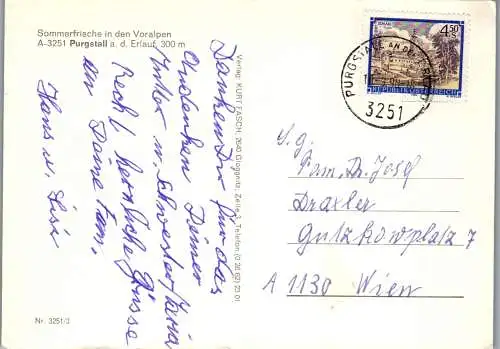 Sommerfrische in den Voralpen
A-3251 Purgstall a. d. Erlauf, 300 m
Danken Dir für das
Andenken Deiner
Mutter u. Schwester Maria
Recht herzliche Grüsse
an Deine Fam.
Hans u. Lisi
Verlag: KURT FASCH, 2640 Gloggnitz, Zeile 3, Telefon (0 26 62) 22 01
Nr. 3251/3
4.50
S
REPUBLIK ÖSTERREICH
PURGSTALL AN DER ERLAUF
3251
S. g.
Fam. Dr. Josef
Draxler
Gutzkowplatz 7
A 1130 Wien